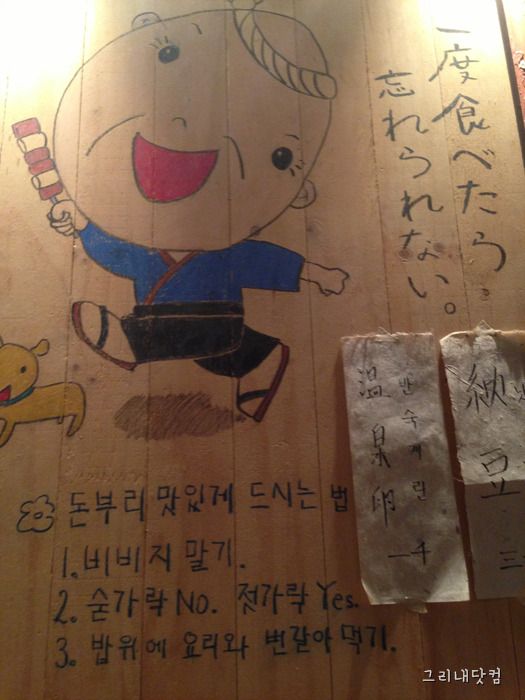 一度食べたら、
忘れられない。
温泉卵
반숙계란
一千
納豆
三
돈부리 맛있게 드시는 법
1. 비비지 말기.
2. 숟가락 No. 젓가락 Yes.
3. 밥위에 요리와 번갈아 먹기.
그리내닷컴